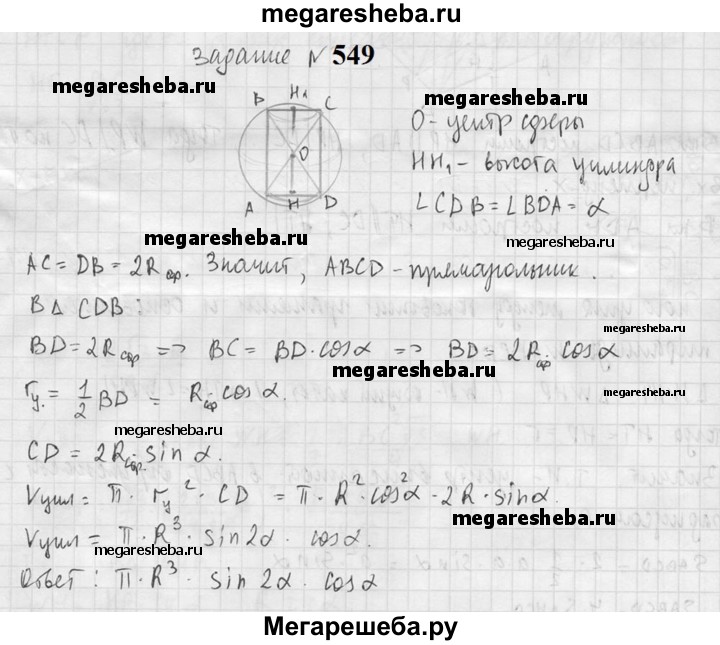 megaresheba.ru
Задание № 549
megaresheba.ru
B H₁ C
megaresheba.ru
O
O - центр сферы
HH₁ - высота цилиндра
A H D
∠CDB = ∠BDA = α
megaresheba.ru
megaresheba.ru
AC = DB = 2Rсф. Значит, ABCD - прямоугольник.
В Δ CDB:
megaresheba.ru
BD = 2Rсф => BC = BD · cosα => BD = 2Rсф. cosα
megaresheba.ru
rц. = 1/2 BD = Rсф cosα.
megaresheba.ru
CD = 2Rсф. sinα.
Vцил = π · rц² · CD = π · R² · cos²α · 2R · sinα.
megaresheba.ru
Vцил = π · R³ · sin2α · cosα.
megaresheba.ru
Ответ: π · R³ · sin2α · cosα
megaresheba.ru
Мегарешеба.ру